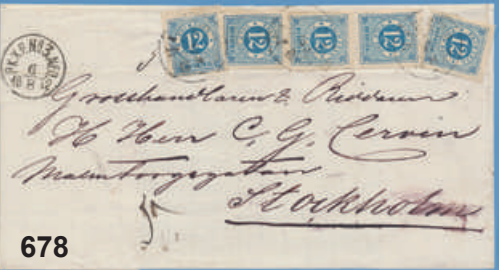 12 12 12 12 12
PKXP.Nº3.
Grosshandlaren & Riddaren
H Herr C. G. Cervin
Malmtorgsgatan
Stockholm
678